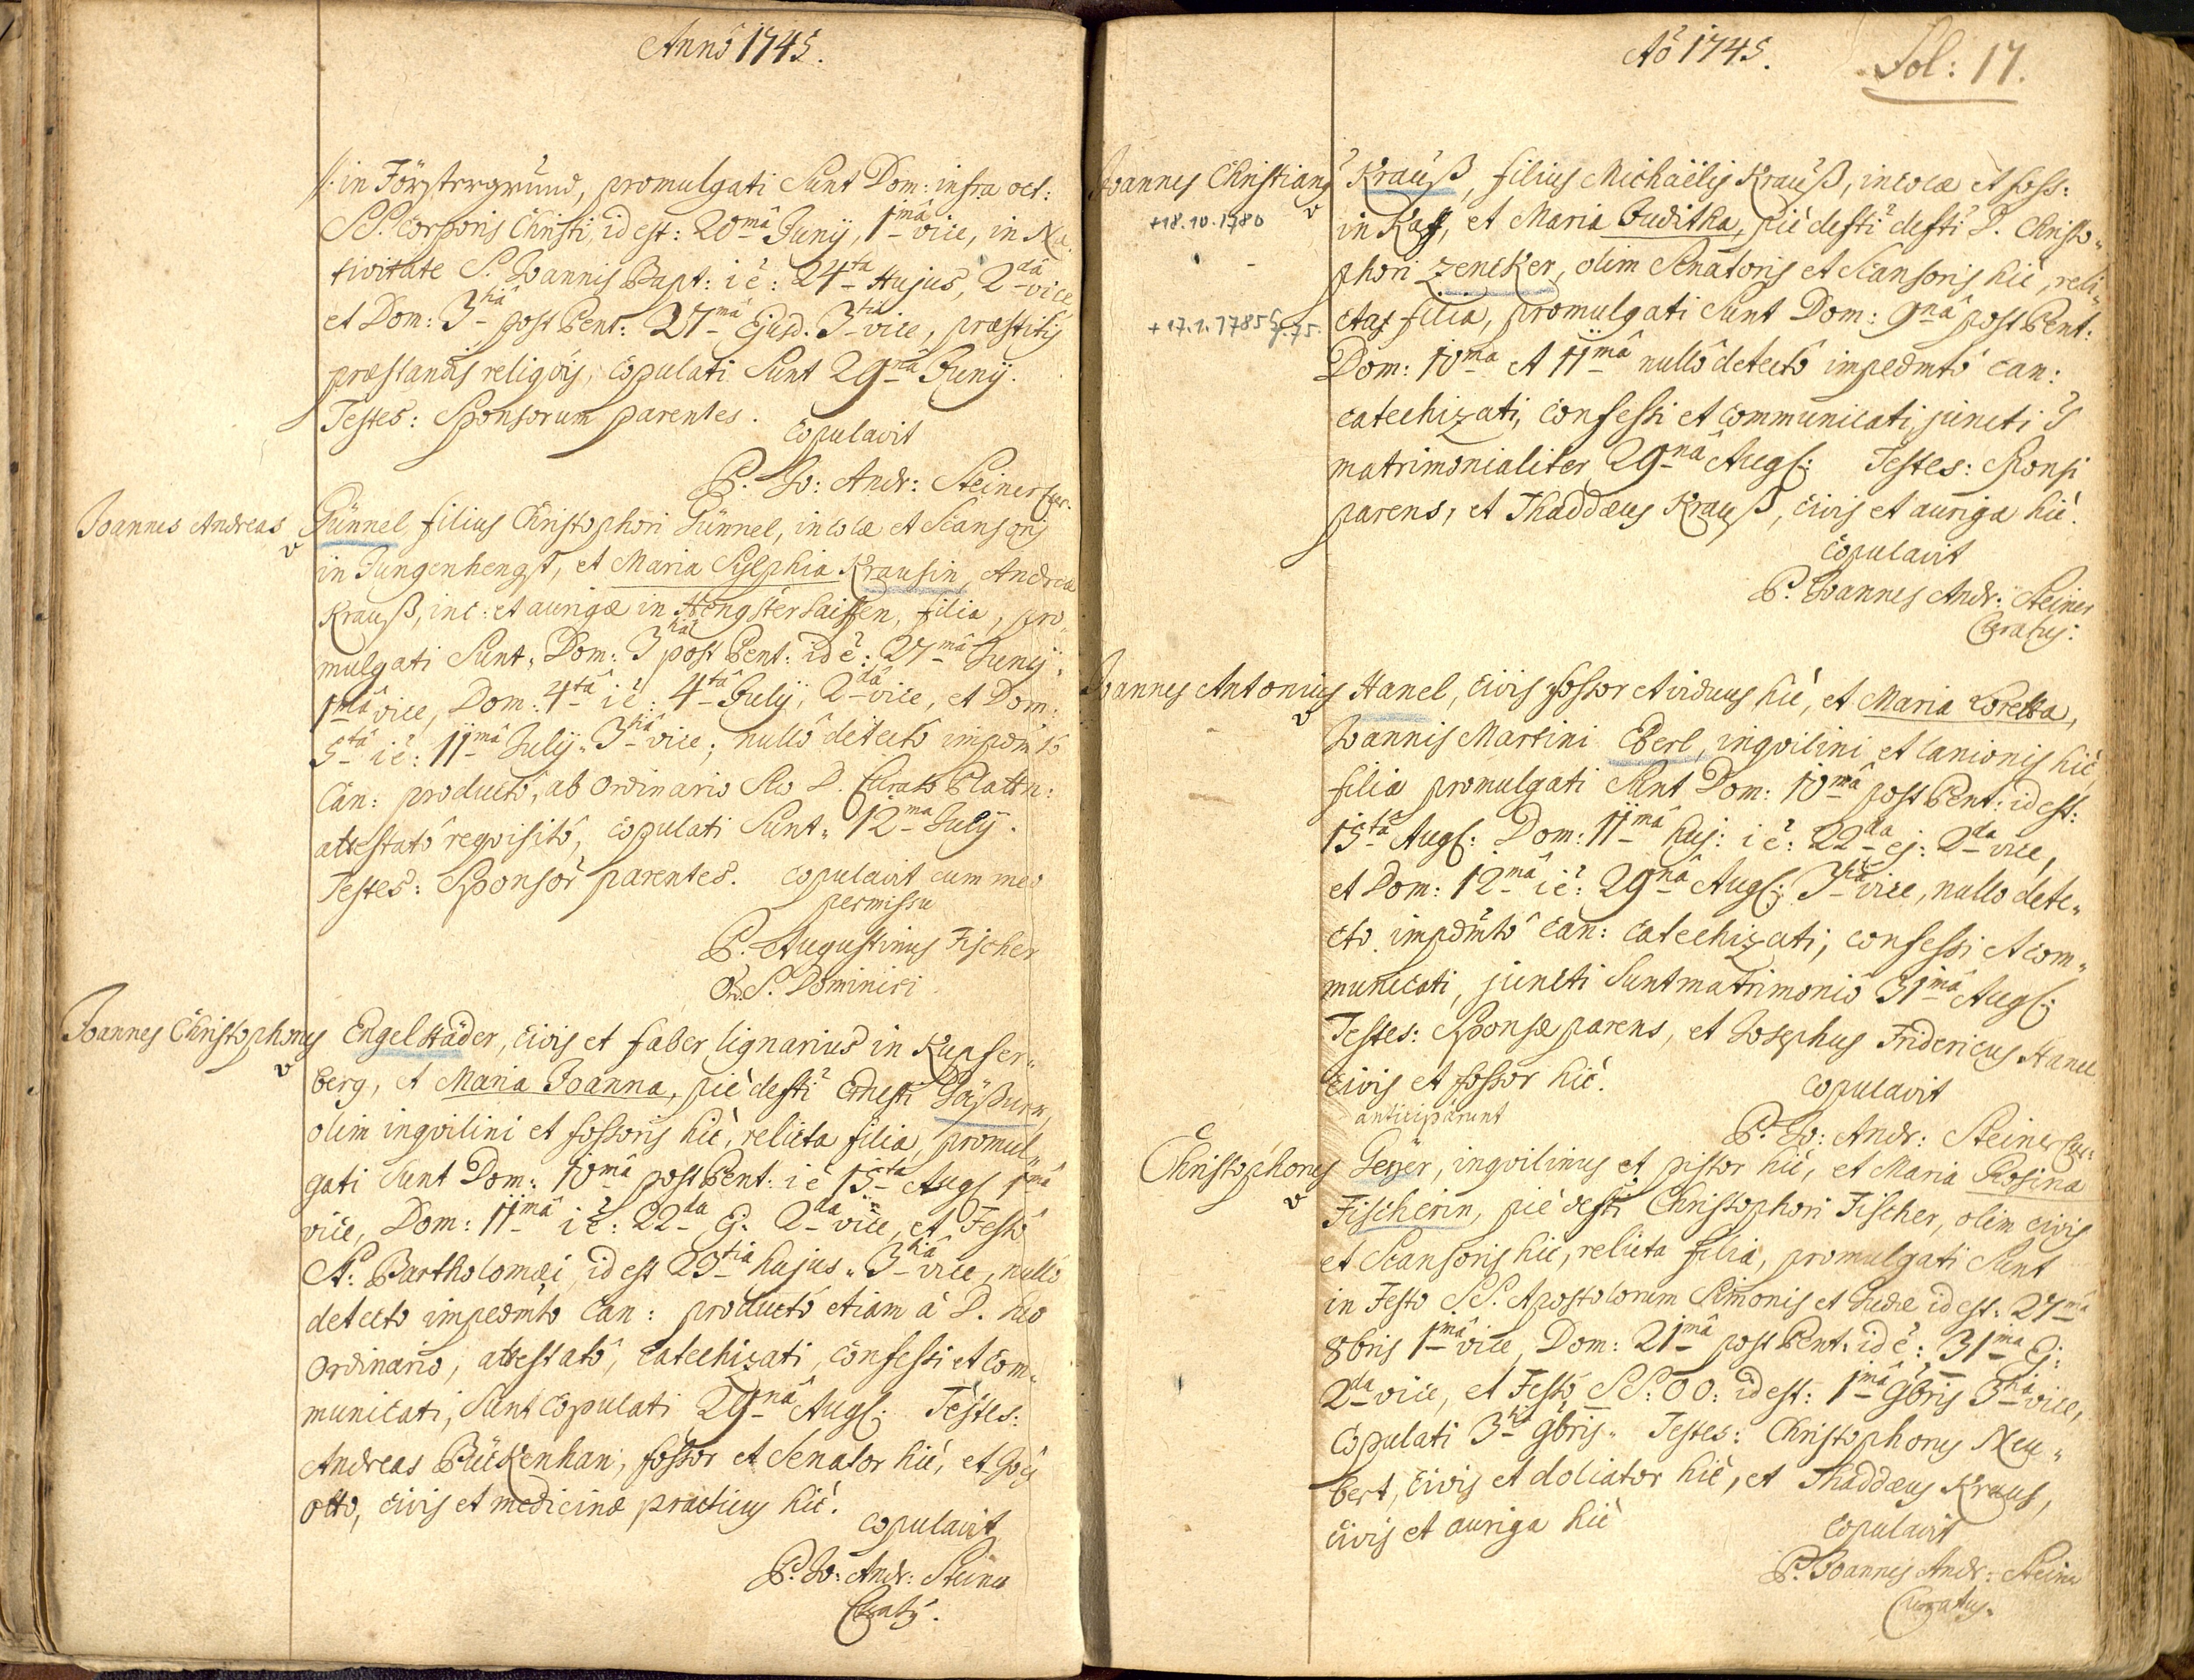 Anno 1745.
//: in Förstergrund, promulgati Sunt Dom: infra oct:
SS. Corporis Christi, id est: 20mâ Junÿ, 1mâ vice, in Na-
tivitate S. Joannis Bapt: i ẽ: 24ta Hujus, 2dâ vice
et Dom: 3tiâ post Pent: 27mâ Ejusd. 3tiâ vice, præstitis
præstandis religiõis, copulati Sunt 29nâ Junÿ.
Testes: Sponsorum parentes.
copulavit
P. Jo: Andr: Steiner Cur.
Joannes Andreas Günnel filius Christophori Günnel, incolæ et Scansoris
in Jungenhengst, et Maria Sylphia Krausin, Andreæ
Krauß, inc: et aurigæ in Hengsterhaissen, filia, pro„
mulgati Sunt„ Dom: 3tiâ post Pent: id ẽ: 27mâ Junÿ„
1mâ vice, Dom: 4tâ i ẽ: 4tâ Julÿ, 2dâ vice, et Dom:
5tâ i ẽ: 11mâ Julÿ„ 3tiâ vice; nullô detectô impdm̃tô
Can: productô, ab Ordinario Suo D. Curato Plattn:
attestatô reqvisitô, copulati Sunt„ 12ma Julÿ.
Testes: Sponsor̃ parentes. copulavit cum meo
permissu
P. Augustinus Fischer
Ord. S. Dominici
Joannes Christophorus Engelstäder, civis et faber lignarius in Kupfer„
berg, et Maria Joanna, piè defti Ernesti
olim inqvilini et fossoris hic, relicta filia, promul„
gati Sunt Dom: 10mâ post Pent: i ẽ 15ta Augs 1mâ
vice, Dom: 11mâ i ẽ: 22da Ej: 2da vice, et Festô
St: Bartholomæi, id est 25tiâ hujus„ 3tiâ vice, nullô
detecto impedm̃to Can: productô etiam à D. suo
Ordinario, attestatô, catechizati, confessi et com„
municati, Sunt copulati 29nâ Augs: Testes:
Andreas Bückenhan, fossor et Senator hic, et
Otto, civis et medicinæ practicus hic.
copulavit
P. Jo: Andr: Steiner
Curatus.
Aõ 1745.
Fol: 17.
Joannes Christianus Krauß, filius Michaëlis Krauß, incolæ et foss:
+18.10.1780
in Kaff, et Maria Juditha, piè defti defti D. Christo„
phori Zencker, olim Senatoris et Scansoris hic, reli„
+17.1.1785 75.
ctas filia, promulgati Sunt Dom: 9nâ post Pent:
Dom: 10ma et 11mâ nullô detectô impedmtô can:
catechizati, confessi et communicati, juncti S
matrimonialiter 29nâ Augs: Testes: Sponsi
parens, et Thaddæus Krauß, civis et auriga hic.
copulavit
P. Joannes Andr: Steiner
Curatus:
Joannes Antonius Hanel, civis fossor et viduus hic, et Maria Loretta,
Joannis Martini Eberl, inqvilini et lanionis hic
filia promulgati Sunt Dom: 10mâ post Pent: id est:
15tâ Augs: Dom: 11mâ huj: i ẽ: 22da ej: 2da vice,
et Dom: 12mâ i ẽ: 29nâ Augs: 3tiâ vice, nullo dete„
cto impdm̃tô Can: catechizati; confessi et com„
municati, juncti Sunt matrimoniô 31mâ Augs:
Testes: Sponsæ parens, et Josephus Fridericus Hanel
civis et fossor hic.
copulavit
anticipârunt
P. Jo: Andr: Steiner Cur:
Christophorus Geyer, inqvilinus et pistor hic, et Maria Rosina
Fischerin, piè defti Christophori Fischer, olim civis
et Scansoris hic, relicta filia, promulgati Sunt
in Festo SS. Apostolorum Simonis et Judæ id est: 27mâ
8bris 1mâ vice, Dom: 21mâ post Pent: id ẽ: 31mâ Ej:
2da vice, et Festô SS: OO: id est: 1mâ 9bris 3tiâ vice,
copulati 3tiâ 9bris„ Testes: Christophorus Neu„
bert, civis et doliator hic, et Thaddæus Kraus,
civis et auriga hic
copulavit
P. Joannes Andr: Steiner
Curatus.